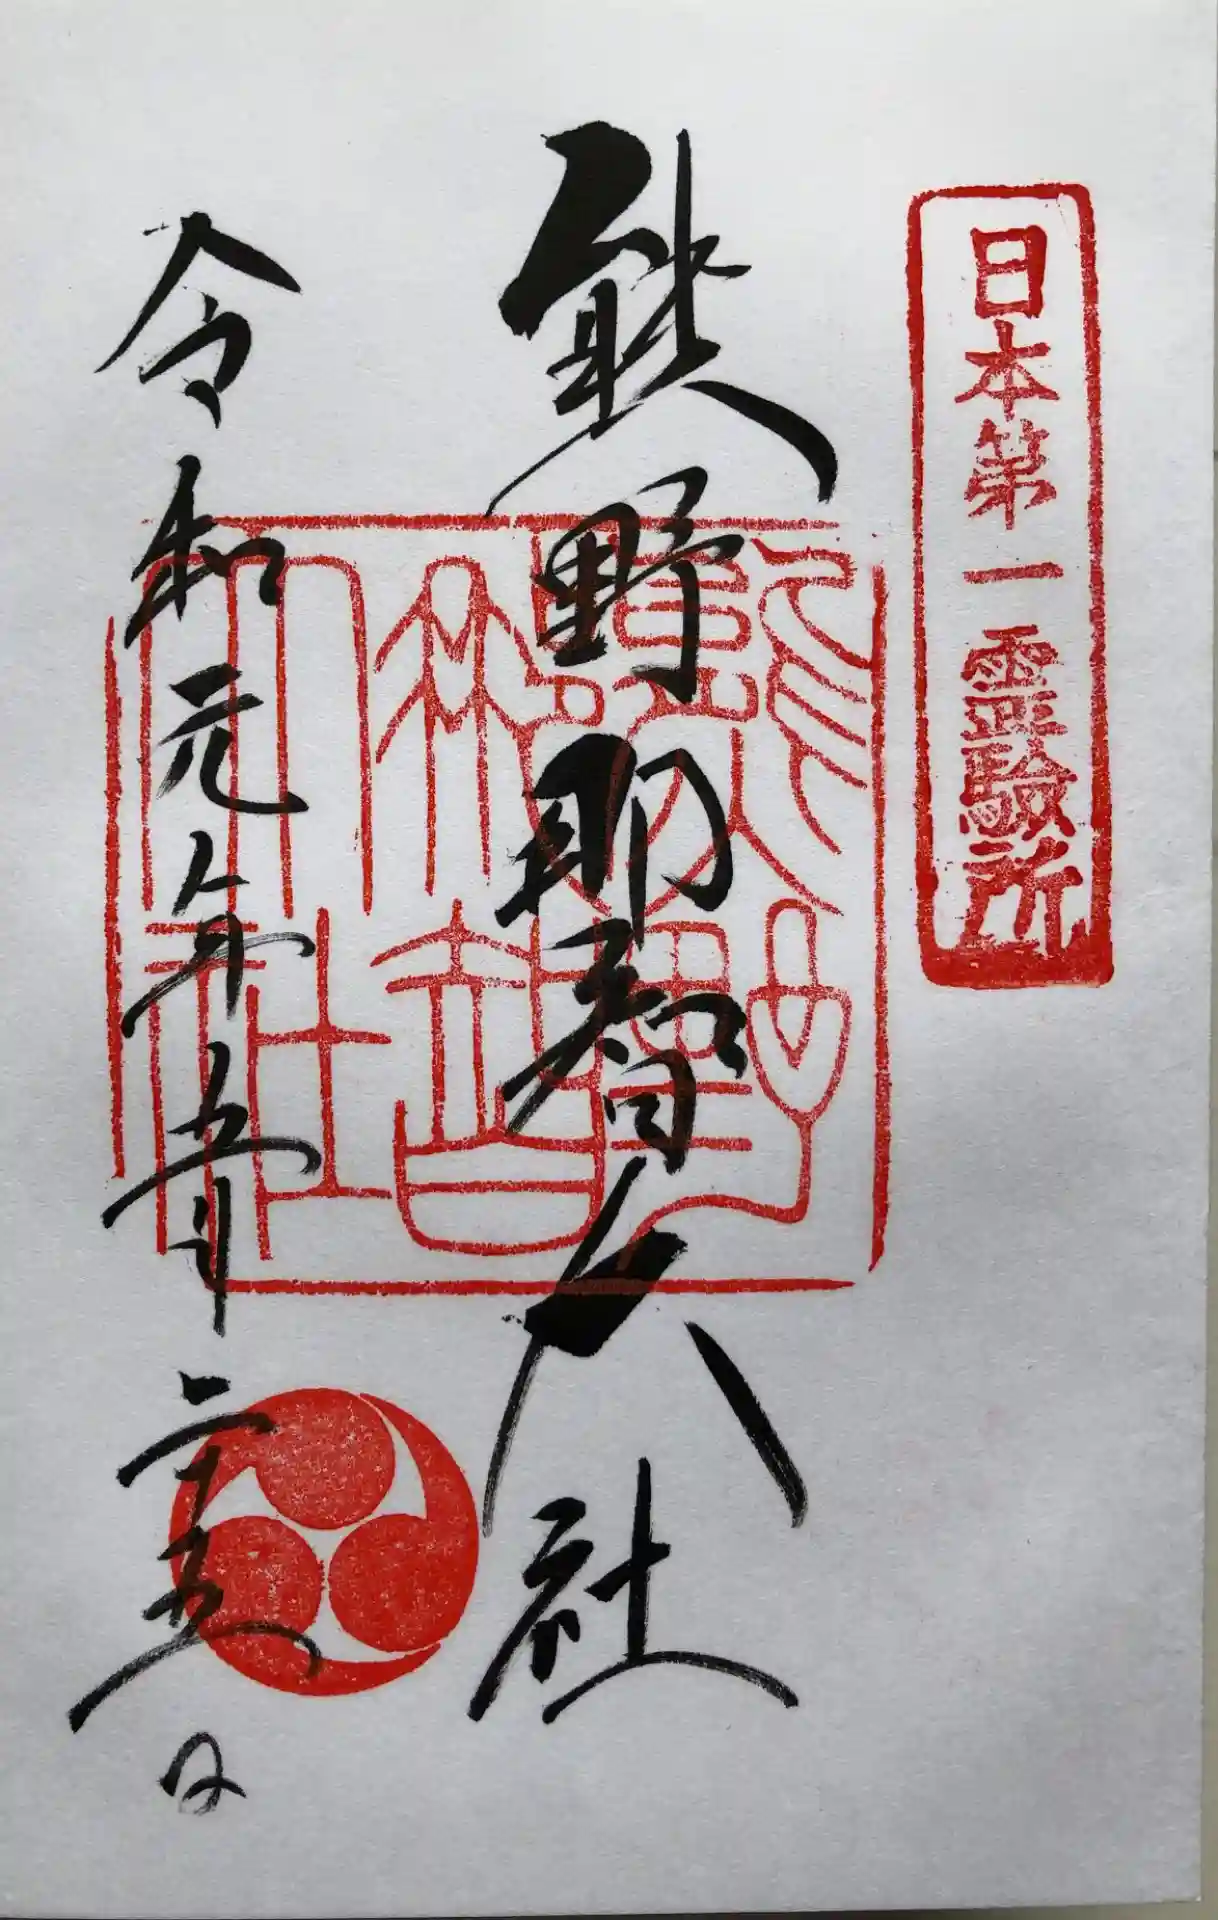 日本第一霊験所
熊野那智大社
熊野
那智
大社
令和元年五月二十五日